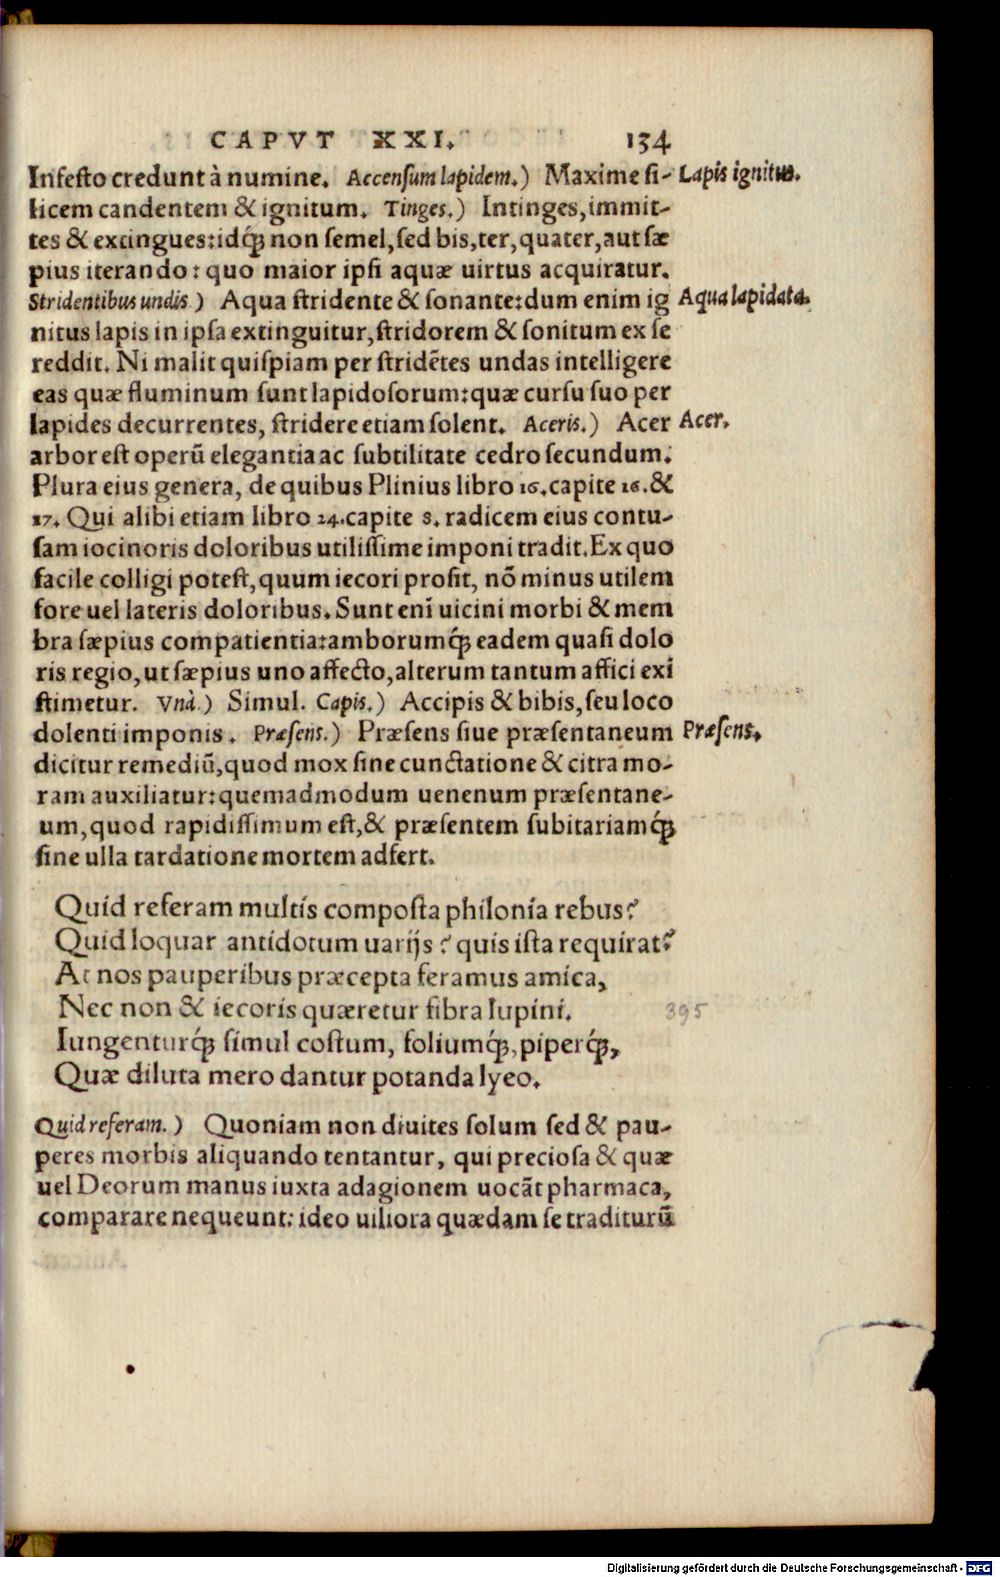 CAPVT XXI. 134
Infesto credunt à numine. Accensum lapidem.) Maxime si- Lapis ignitus.
licem candentem & ignitum. Tinges.) Intinges, immit-
tes & extingues: idq́ue non semel, sed bis, ter, quater, aut sæ
pius iterando: quo maior ipsi aquæ uirtus acquiratur.
Stridentibus undis.) Aqua stridente & sonante: dum enim ig Aqua lapidata.
nitus lapis in ipsa extinguitur, stridorem & sonitum ex se
reddit. Ni malit quispiam per stridētes undas intelligere
eas quæ fluminum sunt lapidosorum: quæ cursu suo per
lapides decurrentes, stridere etiam solent. Aceris.) Acer Acer.
arbor est operū elegantia ac subtilitate cedro secundum.
Plura eius genera, de quibus Plinius libro 16. capite 16. &
17. Qui alibi etiam libro 24. capite 8. radicem eius contu-
sam iocinoris doloribus utilissime imponi tradit. Ex quo
facile colligi potest, quum iecori prosit, nō minus utilem
fore uel lateris doloribus. Sunt enī uicini morbi & mem
bra sæpius compatientia: amborumq́ue eadem quasi dolo
ris regio, ut sæpius uno affecto, alterum tantum affici exi
stimetur. Vnà.) Simul. Capis.) Accipis & bibis, seu loco
dolenti imponis. Præsens.) Præsens siue præsentaneum Præsens.
dicitur remediū, quod mox sine cunctatione & citra mo-
ram auxiliatur: quemadmodum uenenum præsentane-
um, quod rapidissimum est, & præsentem subitariamq́ue
sine ulla tardatione mortem adfert.
Quid referam multis composta philonia rebus?
Quid loquar antidotum uarijs? quis ista requirat?
At nos pauperibus præcepta feramus amica,
Nec non & iecoris quæretur fibra lupini. 395
Iungenturq́ue simul costum, foliumq́ue, piperq́ue,
Quæ diluta mero dantur potanda lyeo.
Quid referam.) Quoniam non diuites solum sed & pau-
peres morbis aliquando tentantur, qui preciosa & quæ
uel Deorum manus iuxta adagionem uocāt pharmaca,
comparare nequeunt: ideo uiliora quædam se traditurū
Digitalisierung gefördert durch die Deutsche Forschungsgemeinschaft - DFG